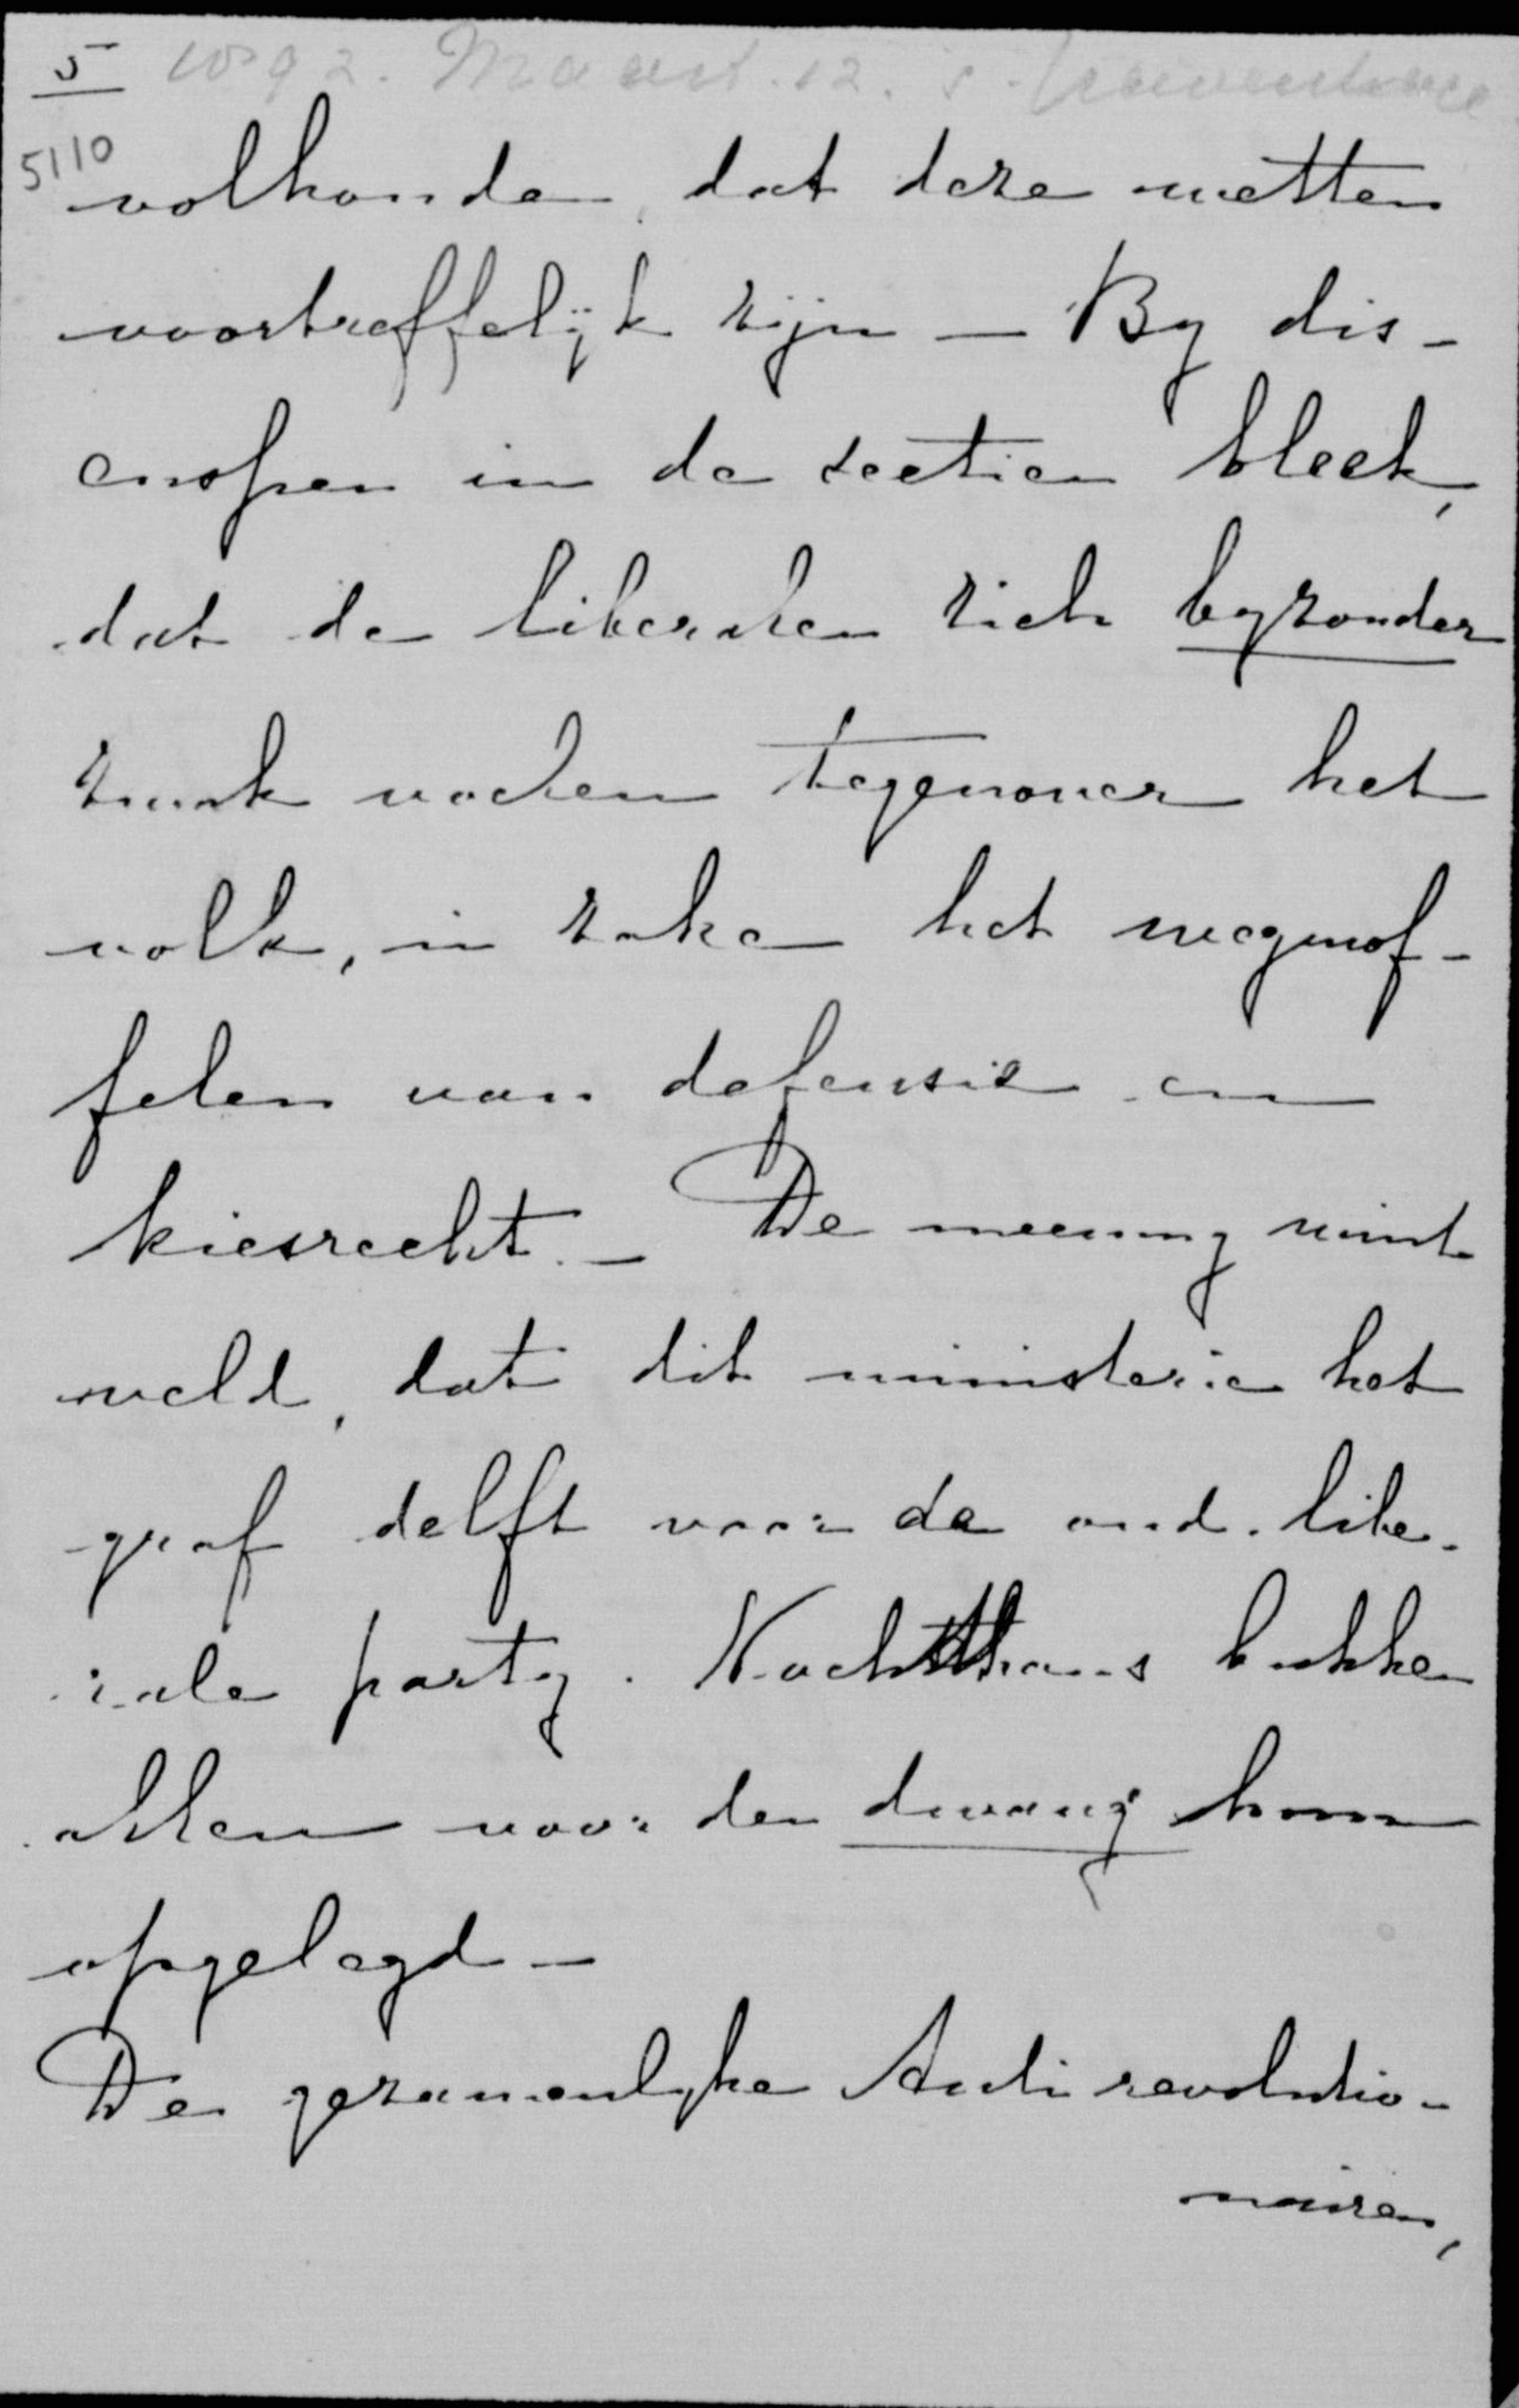 5 1892. Maart. 12. s. Gravenhage
5110
volhouden, dat deze wetten
voortreffelijk zijn — By dis-
cussien in de sectien bleek,
dat de liberalen zich byzonder
zwak voelen tegenover het
volk, in zake het wegmof-
felen van defensie en
kiesrecht. — De meening wint
veld, dat dit ministerie het
graf delft voor de oud. libe-
rale party. Nochtthans bukken
allen voor den dwang hun
opgelegd —
De gezamenlyke Antirevolutio-
nairen,